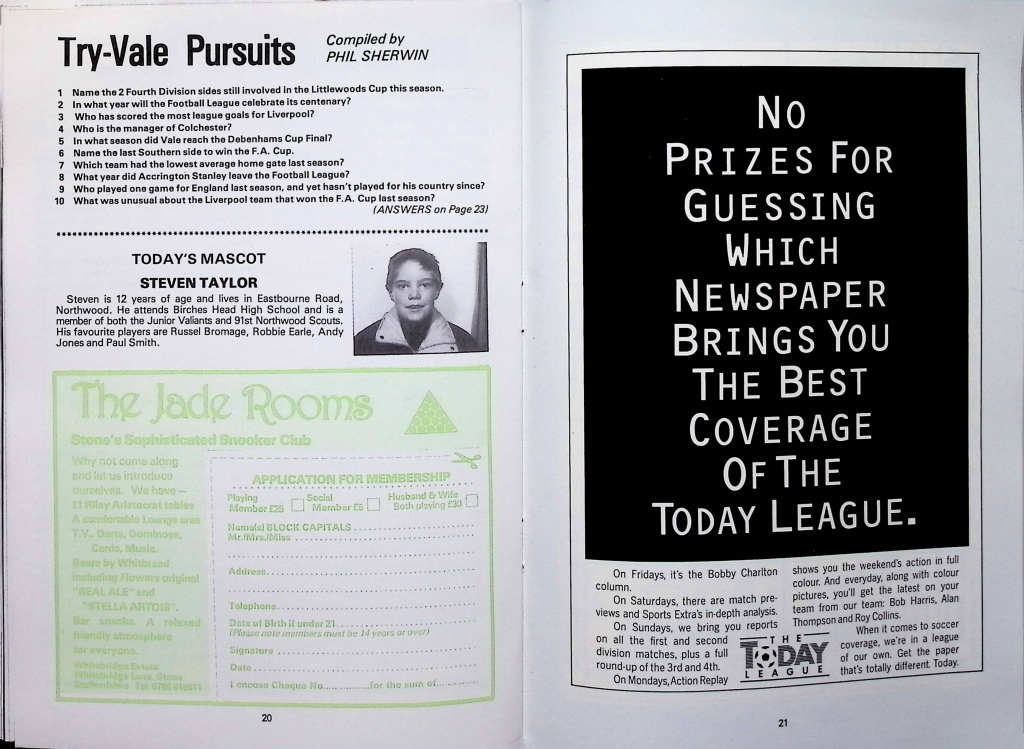 Try-Vale Pursuits
Compiled by
PHIL SHERWIN
1 Name the 2 Fourth Division sides still involved in the Littlewoods Cup this season.
2 In what year will the Football League celebrate its centenary?
3 Who has scored the most league goals for Liverpool?
4 Who is the manager of Colchester?
5 In what season did Vale reach the Debenhams Cup Final?
6 Name the last Southern side to win the F.A. Cup.
7 Which team had the lowest average home gate last season?
8 What year did Accrington Stanley leave the Football League?
9 Who played one game for England last season, and yet hasn't played for his country since?
10 What was unusual about the Liverpool team that won the F.A. Cup last season?
(ANSWERS on Page 23)
TODAY'S MASCOT
STEVEN TAYLOR
Steven is 12 years of age and lives in Eastbourne Road,
Northwood. He attends Birches Head High School and is a
member of both the Junior Valiants and 91st Northwood Scouts.
His favourite players are Russel Bromage, Robbie Earle, Andy
Jones and Paul Smith.
The Jade Rooms
Stone's Sophisticated Snooker Club
Why not come along
and let us introduce
ourselves. We have—
11 Riley Aristocrat tables
A comfortable Lounge area
T.V., Darts, Dominoes,
Cards, Music.
Beers by Whitbread
including Flowers original
"REAL ALE" and
"STELLA ARTOIS".
Bar snacks. A relaxed
friendly atmosphere
for everyone.
Whitebridge Estate
Whitebridge Lane, Stone
Staffordshire Tel.
APPLICATION FOR MEMBERSHIP
Playing Member £25
Social Member £5
Husband & Wife Both playing £30
Name(s) BLOCK CAPITALS
Mr./Mrs./Miss
Address
Telephone
Date of Birth if under 21
(Please note members must be 14 years or over)
Signature
Date
I encose Cheque No. for the sum of
20
NO
PRIZES FOR
GUESSING
WHICH
NEWSPAPER
BRINGS YOU
THE BEST
COVERAGE
OF THE
TODAY LEAGUE.
On Fridays, it's the Bobby Charlton
column.
On Saturdays, there are match pre-
views and Sports Extra's in-depth analysis.
On Sundays, we bring you reports
on all the first and second
division matches, plus a full
round-up of the 3rd and 4th.
On Mondays, Action Replay
shows you the weekend's action in full
colour. And everyday, along with colour
pictures, you'll get the latest on your
team from our team: Bob Harris, Alan
Thompson and Roy Collins.
When it comes to soccer
coverage, we're in a league
of our own. Get the paper
that's totally different. Today.
THE
TODAY
LEAGUE
21